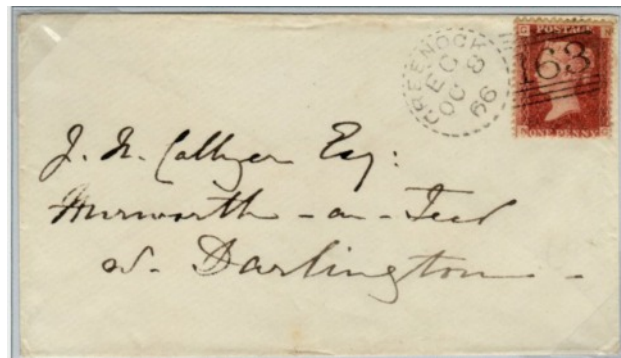 GREENOCK
E C
OC 8
66
POSTAGE
163
ONE PENNY
J. N. Collyer Esq:
Hurworth - on - Tees
nr. Darlington -